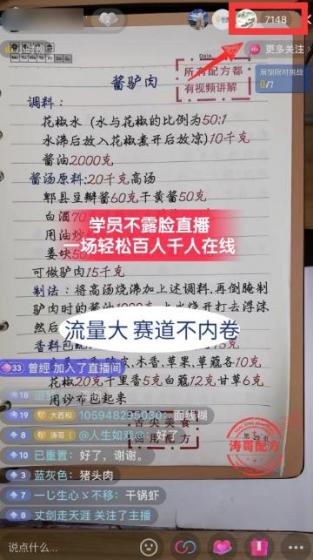 7148
更多关注
Date
所有配方都
有视频讲解
酱驴肉
调料：
花椒水（水与花椒的比例为50:1
水沸后放入花椒煮开后放凉）10千克
酱油2000克
酱汤原料：20千克高汤
郫县豆瓣酱60克干黄酱50克
白酒70
用油炒
姜块50
可做驴肉15千克
学员不露脸直播
一场轻松百人千人在线
制法：将高汤烧沸加上述调料，再倒腌制
驴肉时的酱油
流量大 赛道不内卷
然后
香料包
木香，草果，草蔻各10克
花椒20克千里香5克白蔻12克甘草6克
用纱布包起来
33 曾經 加入了直播间
大西松 105948295030：面线糊
8 涛哥 @人生如戏@ 好了
10 已重置：好了，谢谢。
3 蓝灰色：猪头肉
7 一じ生心ゞ不移：干锅虾
8 丈剑走天涯 关注了主播
舌尖美食
实用配方
涛哥配方
说点什么...